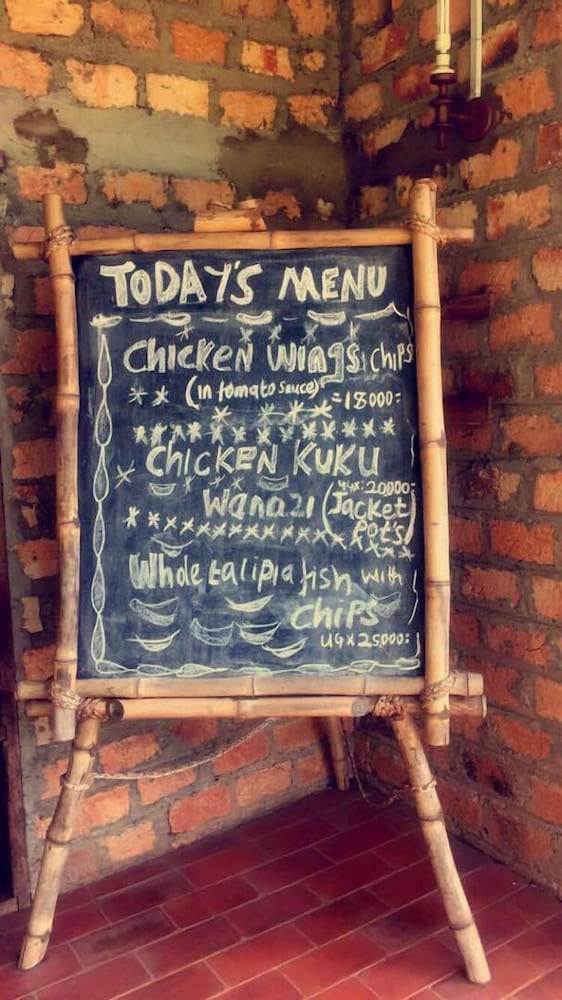 TODAY'S MENU
Chicken Wings CHIPS
(in tomato sauce) =18000=
CHICKEN KUKU
UGX: 20000=
Wanazi (Jacket
Pot's)
Whole talipia fish with
CHIPS
UGX 25000=